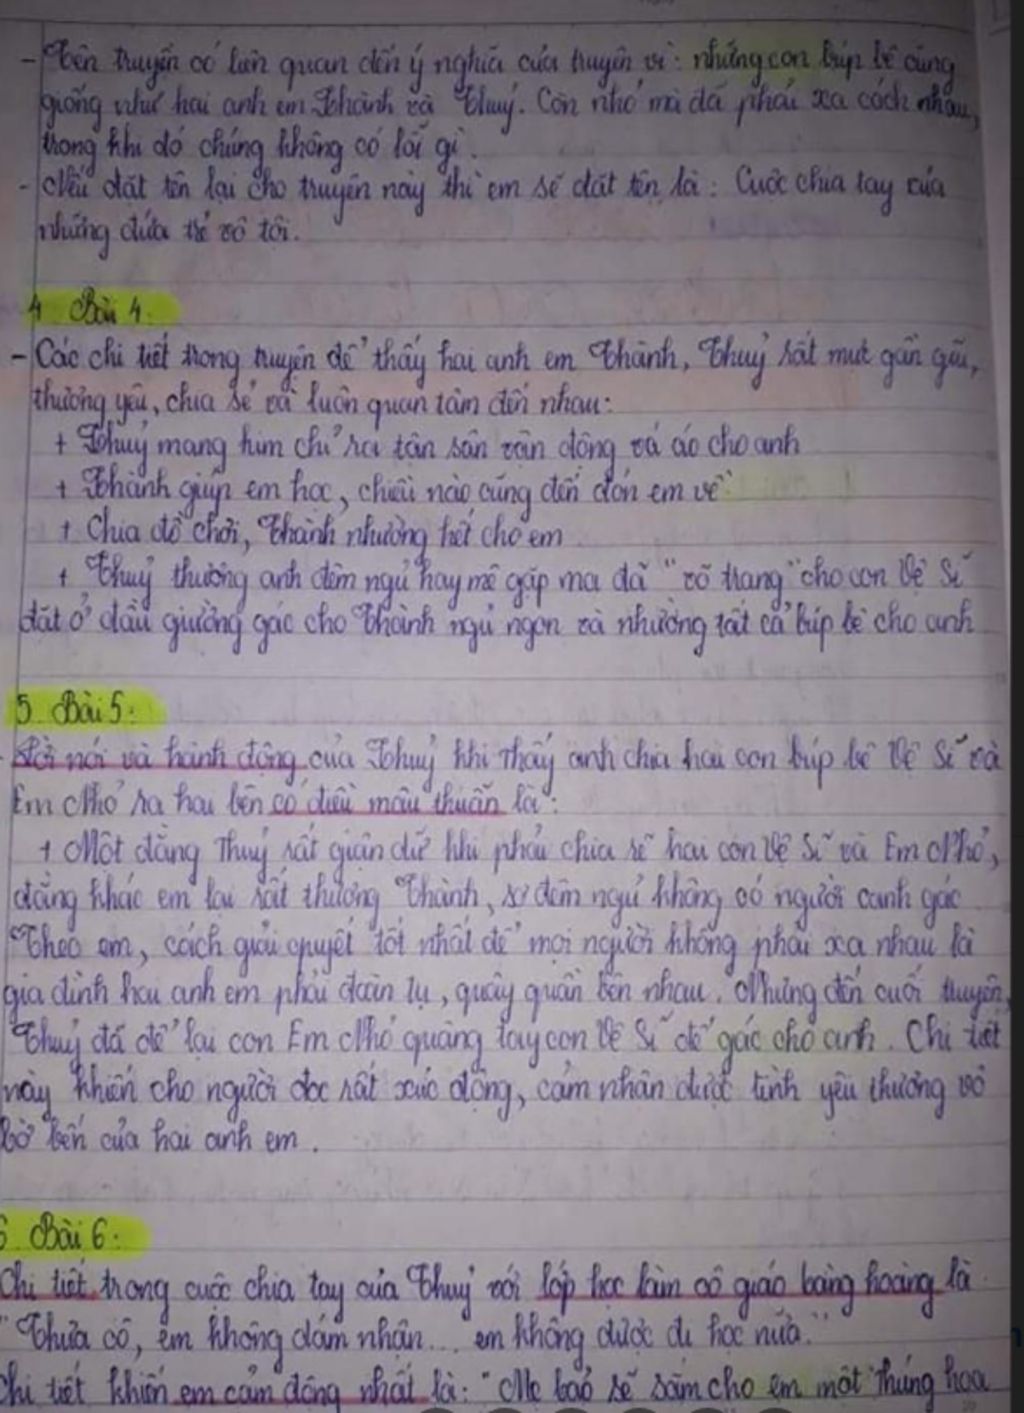 - Tên truyện có liên quan đến ý nghĩa của truyện vì: những con búp bê cũng
giống như hai anh em Thành và Thuỷ. Còn nhỏ mà đã phải xa cách nhau,
trong khi đó chúng không có lỗi gì.
- Nếu đặt tên lại cho truyện này thì em sẽ đặt tên là: Cuộc chia tay của
những đứa trẻ vô tội.
4 Bài 4.
- Các chi tiết trong truyện để thấy hai anh em Thành, Thuỷ rất mực gần gũi,
thương yêu, chia sẻ và luôn quan tâm đến nhau:
+ Thuỷ mang kim chỉ ra tận sân vận động vá áo cho anh
+ Thành giúp em học, chiều nào cũng đến đón em về
+ Chia đồ chơi, Thành nhường hết cho em
+ Thuỷ thương anh đêm ngủ hay mê gặp ma đã "võ trang" cho con Vệ Sĩ
đặt ở đầu giường gác cho Thành ngủ ngon và nhường tất cả búp bê cho anh
5 Bài 5:
Lời nói và hành động của Thuỷ khi thấy anh chia hai con búp bê Vệ Sĩ và
Em Nhỏ ra hai bên có điều mâu thuẫn là:
+ Một đằng Thuỷ rất giận dữ khi phải chia rẽ hai con Vệ Sĩ và Em Nhỏ,
đằng khác em lại rất thương Thành, sợ đêm ngủ không có người canh gác
Theo em, cách giải quyết tốt nhất để mọi người không phải xa nhau là
gia đình hai anh em phải đoàn tụ, quây quần bên nhau. Nhưng đến cuối truyện,
Thuỷ đã để lại con Em Nhỏ quàng tay con Vệ Sĩ để gác cho anh. Chi tiết
này khiến cho người đọc rất xúc động, cảm nhận được tình yêu thương vô
bờ bến của hai anh em.
6 Bài 6:
Chi tiết trong cuộc chia tay của Thuỷ với lớp học làm cô giáo bàng hoàng là
"Thưa cô, em không dám nhận... em không được đi học nữa."
Chi tiết khiến em cảm động nhất là: "Mẹ bảo sẽ sắm cho em một thúng hoa